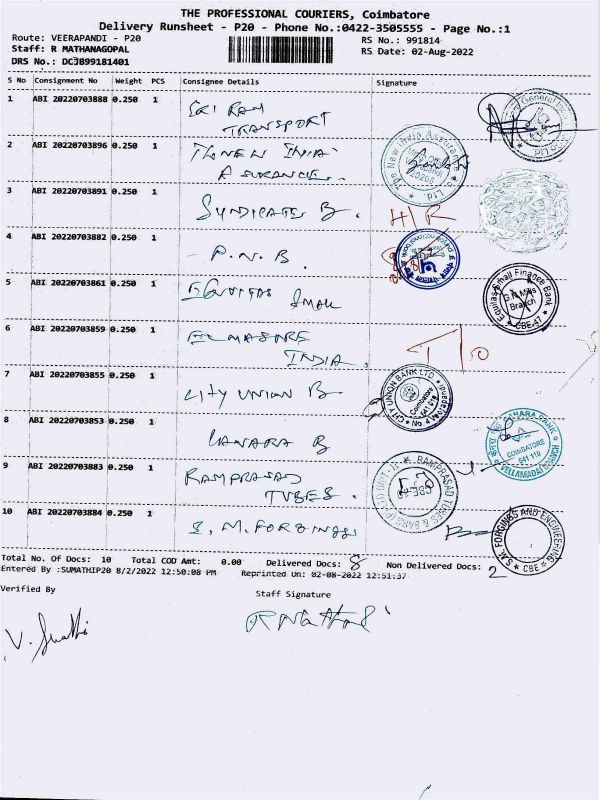 THE PROFESSIONAL COURIERS, Coimbatore
Delivery Runsheet - P20 - Phone No.:0422-3505555 - Page No.:1
Route: VEERAPANDI - P20
RS No.: 991814
Staff: R MATHANAGOPAL
RS Date: 02-Aug-2022
DRS No.: DCJB99181401
S No Consignment No Weight PCS Consignee Details Signature
1 ABI 20220703888 0.250 1 SRI RAM
TRANSPORT
2 ABI 20220703896 0.250 1 INDIA
The New India Assurance Co Ltd.
3 ABI 20220703891 0.250 1 SYNDICATE B. H/R
4 ABI 20220703882 0.250 1 P.N.B.
5 ABI 20220703861 0.250 1 EQUITAS SMALL
Equitas Small Finance Bank
G.N Mills
Branch
CBE-47
6 ABI 20220703859 0.250 1
INDIA. T/O
7 ABI 20220703855 0.250 1 CITY UNION B
CITY UNION BANK LTD
Coimbatore
641 019
8 ABI 20220703853 0.250 1 CANARA B
CANARA BANK
COIMBATORE
641 110
9 ABI 20220703883 0.250 1 RAMPRASAD
TUBES.
RAMPRASAD TUBES & BARS (P)
10 ABI 20220703884 0.250 1 S.M.FORGINGS
S.M. FORGINGS AND ENGINEERING
CBE
Total No. Of Docs: 10 Total COD Amt: 0.00 Delivered Docs: 8 Non Delivered Docs: 2
Entered By :SUMATHIP20 8/2/2022 12:50:08 PM Reprinted On: 02-08-2022 12:51:37
Verified By
Staff Signature